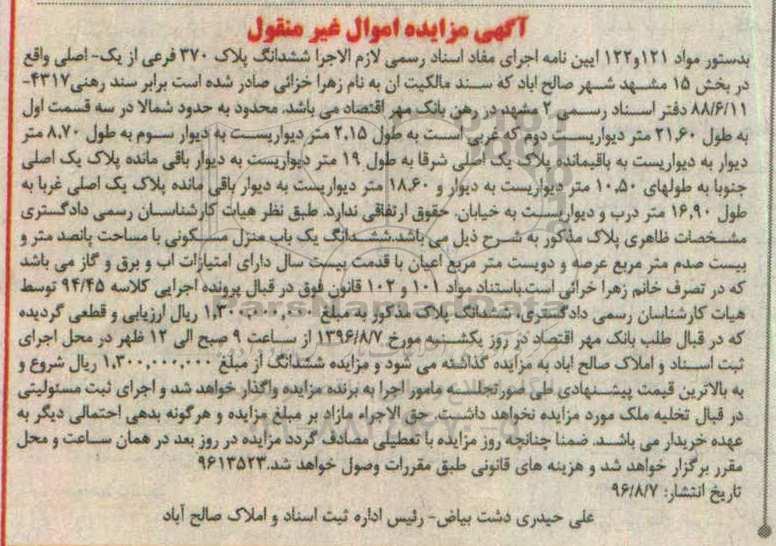 آگهی مزایده اموال غیر منقول
بدستور مواد ۱۲۱و۱۲۲ ایین نامه اجرای مفاد اسناد رسمی لازم الاجرا ششدانگ پلاک ۳۷۰ فرعی از یک- اصلی واقع
در بخش ۱۵ مشهد شهر صالح اباد که سند مالکیت ان به نام زهرا خزائی صادر شده است برابر سند رهنی۴۳۱۷-
۸۸/۶/۱۱ دفتر اسناد رسمی ۲ مشهد در رهن بانک مهر اقتصاد می باشد. محدود به حدود شمالا در سه قسمت اول
به طول ۲۱،۶۰ متر دیواریست دوم که غربی است به طول ۲،۱۵ متر دیواریست به دیوار سوم به طول ۸،۷۰ متر
دیوار به دیواریست به باقیمانده پلاک یک اصلی شرقا به طول ۱۹ متر دیواریست به دیوار باقی مانده پلاک یک اصلی
جنوبا به طولهای ۱۰،۵۰ متر دیواریست به دیوار و ۱۸،۶۰ متر دیواریست به دیوار باقی مانده پلاک یک اصلی غربا به
طول ۱۶،۹۰ متر درب و دیواریست به خیابان. حقوق ارتفاقی ندارد. طبق نظر هیات کارشناسان رسمی دادگستری
مشخصات ظاهری پلاک مذکور به شرح ذیل می باشد.ششدانگ یک باب منزل مسکونی با مساحت پانصد متر و
بیست صدم متر مربع عرصه و دویست متر مربع اعیان با قدمت بیست سال دارای امتیازات اب و برق و گاز می باشد
که در تصرف خانم زهرا خزائی است.باستناد مواد ۱۰۱ و ۱۰۲ قانون فوق در قبال پرونده اجرایی کلاسه ۹۴/۴۵ توسط
هیات کارشناسان رسمی دادگستری، ششدانگ پلاک مذکور به مبلغ ۱،۳۰۰،۰۰۰،۰۰۰ ریال ارزیابی و قطعی گردیده
که در قبال طلب بانک مهر اقتصاد در روز یکشنبه مورخ ۱۳۹۶/۸/۷ از ساعت ۹ صبح الی ۱۲ ظهر در محل اجرای
ثبت اسناد و املاک صالح اباد به مزایده گذاشته می شود و مزایده ششدانگ از مبلغ ۱،۳۰۰،۰۰۰،۰۰۰ ریال شروع و
به بالاترین قیمت پیشنهادی طی صورتجلسه مامور اجرا به برنده مزایده واگذار خواهد شد و اجرای ثبت مسئولیتی
در قبال تخلیه ملک مورد مزایده نخواهد داشت. حق الاجراء مازاد بر مبلغ مزایده و هرگونه بدهی احتمالی دیگر به
عهده خریدار می باشد. ضمنا چنانچه روز مزایده با تعطیلی مصادف گردد مزایده در روز بعد در همان ساعت و محل
مقرر برگزار خواهد شد و هزینه های قانونی طبق مقررات وصول خواهد شد.۹۶۱۳۵۲۳
تاریخ انتشار: ۹۶/۸/۷
علی حیدری دشت بیاض- رئیس اداره ثبت اسناد و املاک صالح آباد
ParsNamadData